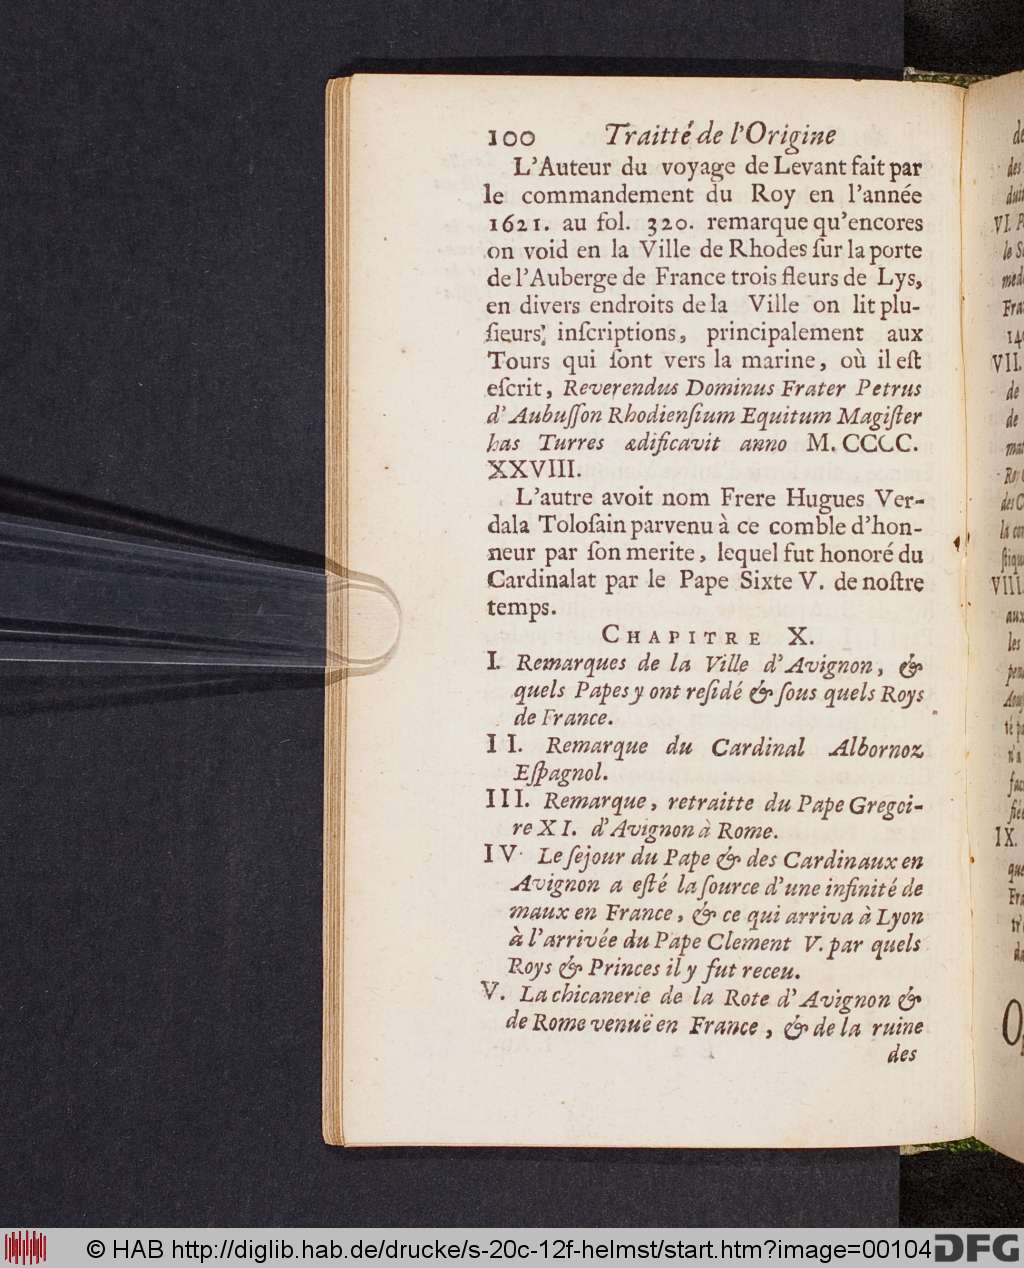 100 Traitté de l'Origine
L'Auteur du voyage de Levant fait par
le commandement du Roy en l'année
1621. au fol. 320. remarque qu'encores
on void en la Ville de Rhodes ſur la porte
de l'Auberge de France trois fleurs de Lys,
en divers endroits de la Ville on lit plu-
ſieurs inſcriptions, principalement aux
Tours qui ſont vers la marine, où il eſt
eſcrit, Reverendus Dominus Frater Petrus
d'Aubuſſon Rhodienſium Equitum Magiſter
has Turres ædificavit anno M. CCCC.
XXVIII.
L'autre avoit nom Frere Hugues Ver-
dala Toloſain parvenu à ce comble d'hon-
neur par ſon merite, lequel fut honoré du
Cardinalat par le Pape Sixte V. de noſtre
temps.
CHAPITRE X.
I. Remarques de la Ville d'Avignon, &
quels Papes y ont reſidé & ſous quels Roys
de France.
II. Remarque du Cardinal Albornoz
Eſpagnol.
III. Remarque, retraitte du Pape Gregoi-
re XI. d'Avignon à Rome.
IV. Le ſejour du Pape & des Cardinaux en
Avignon a eſté la ſource d'une infinité de
maux en France, & ce qui arriva à Lyon
à l'arrivée du Pape Clement V. par quels
Roys & Princes il y fut receu.
V. La chicanerie de la Rote d'Avignon &
de Rome venuë en France, & de la ruine
des
VI.
VII.
VIII.
IX.
© HAB http://diglib.hab.de/drucke/s-20c-12f-helmst/start.htm?image=00104
DFG